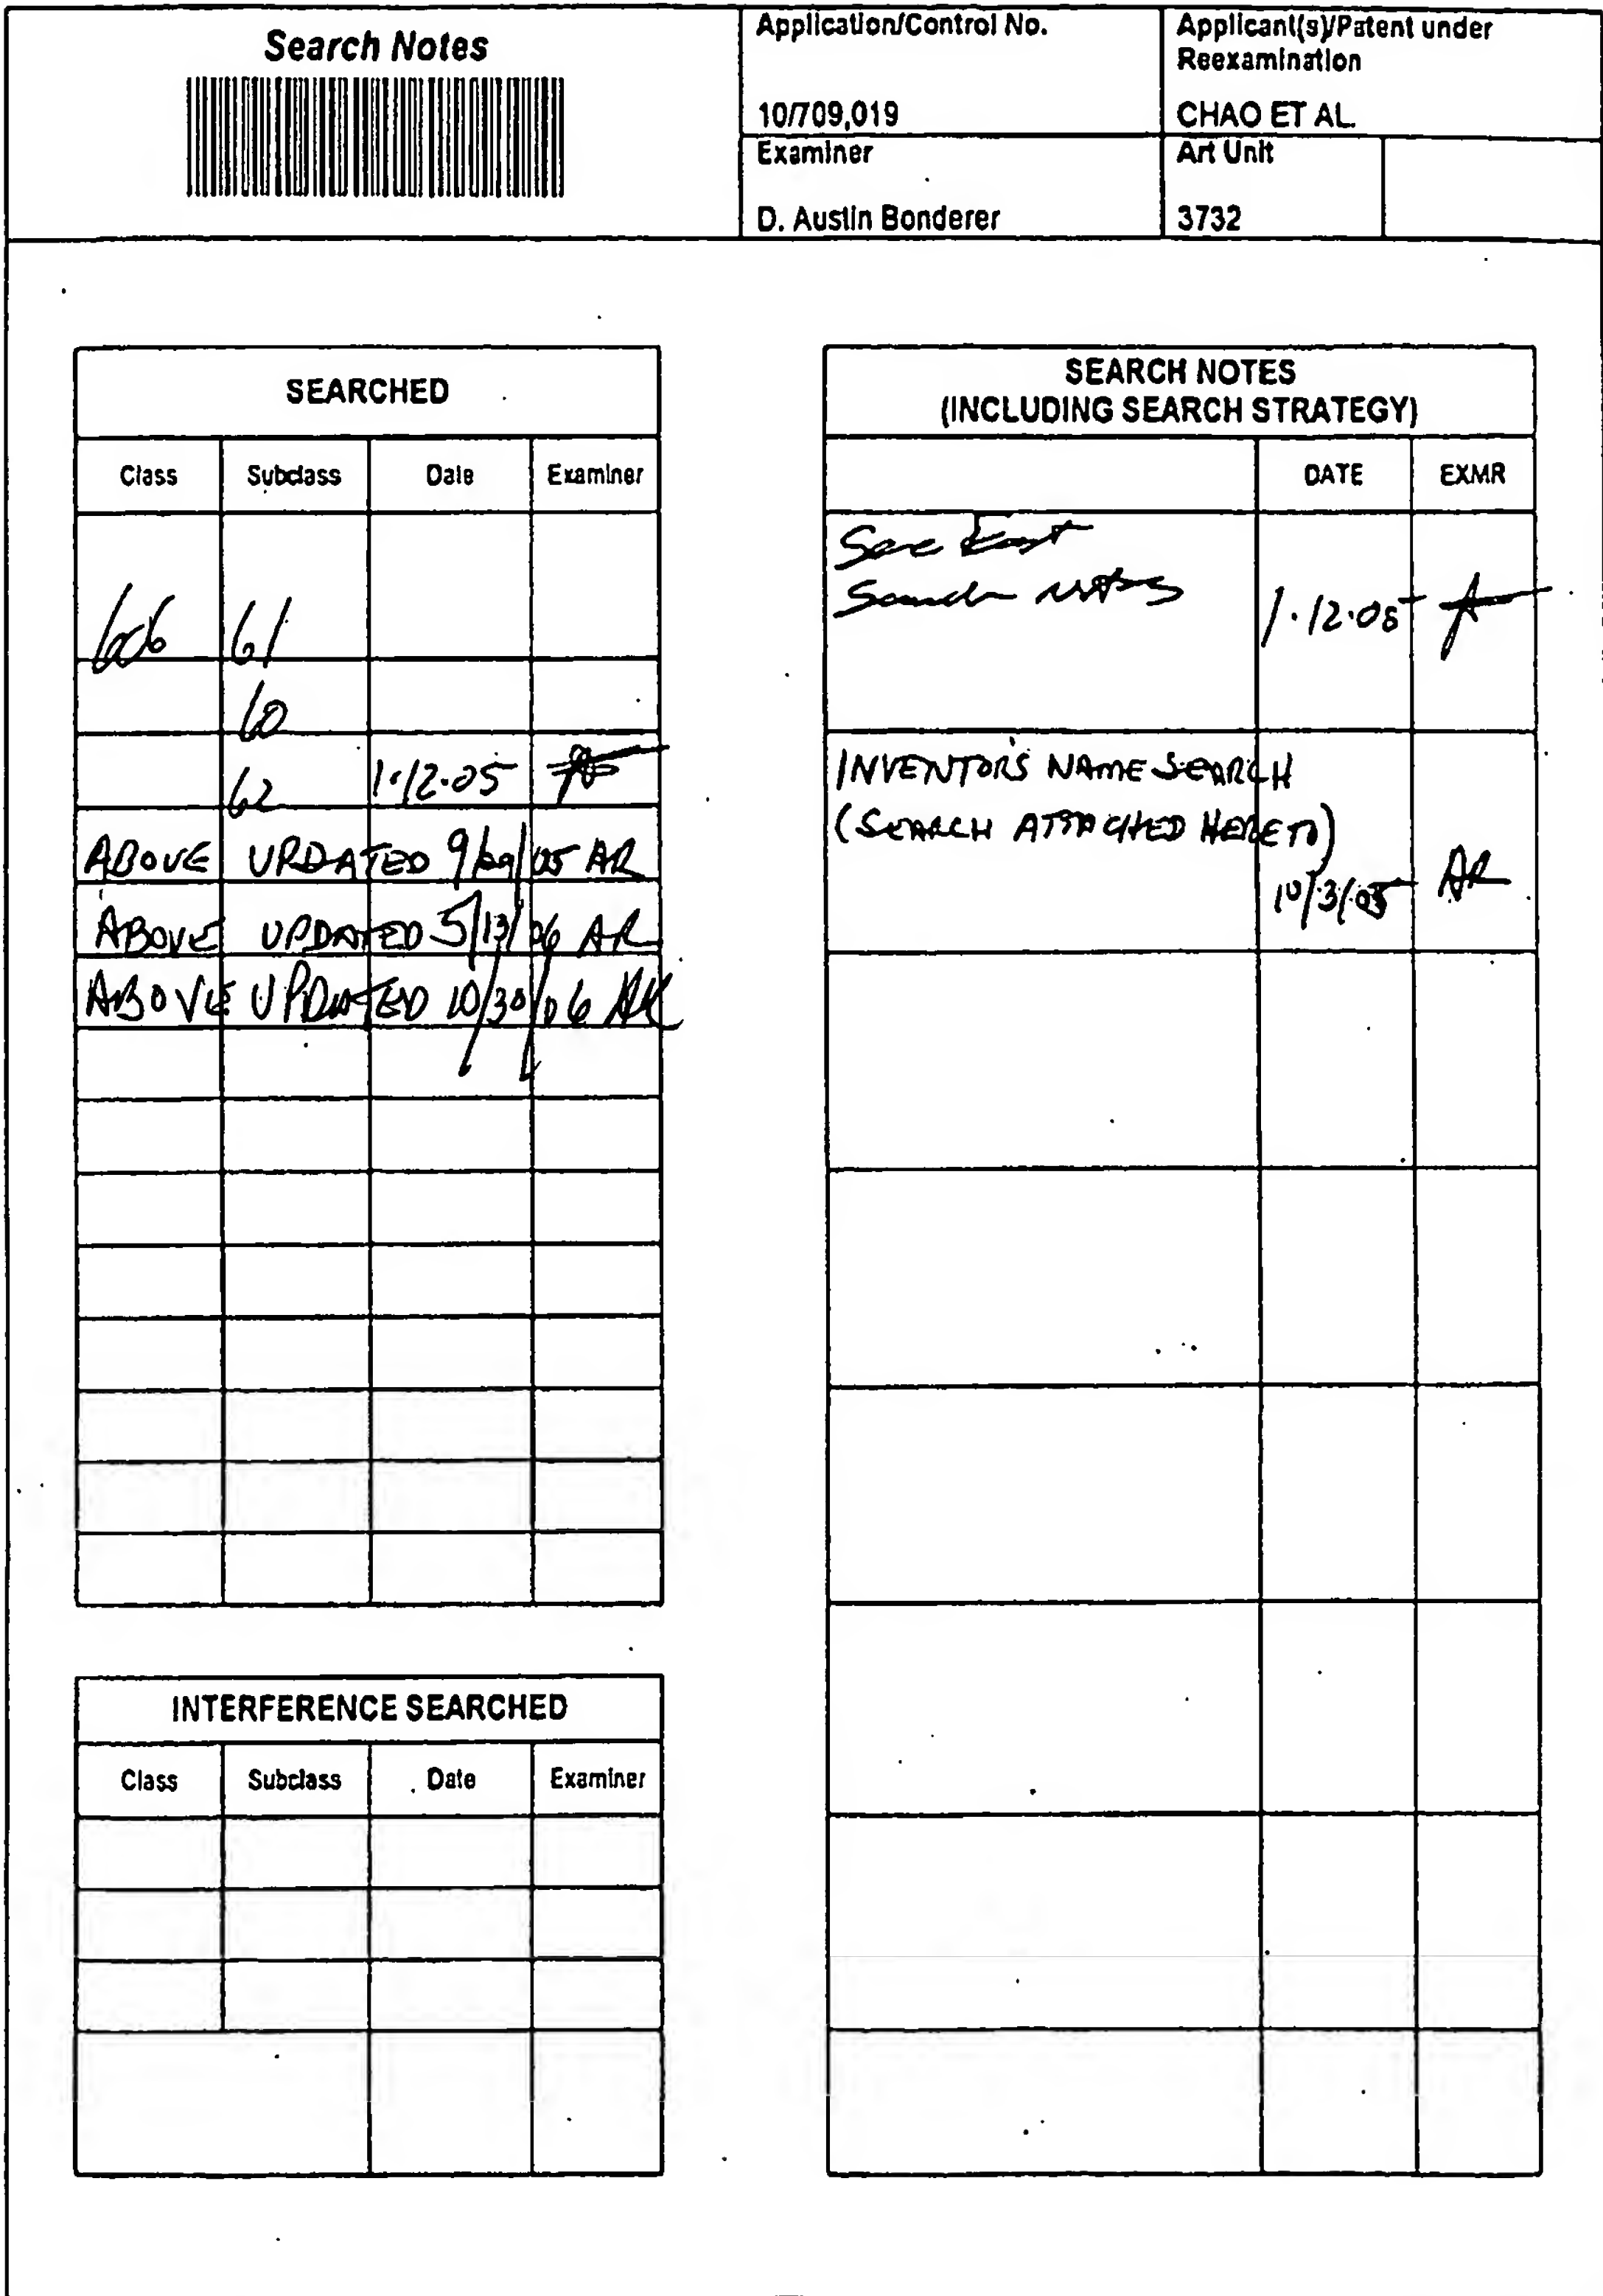 Search Notes
Application/Control No.
10/709,019
Applicant(s)/Patent under
Reexamination
CHAO ET AL.
Examiner
D. Austin Bonderer
Art Unit
3732
SEARCHED
Class Subclass Date Examiner
606 61
60
62 1.12.05
ABOVE UPDATED 9/29/05 AR
ABOVE UPDATED 5/13/06 AR
ABOVE UPDATED 10/30/06 AR
INTERFERENCE SEARCHED
Class Subclass Date Examiner
SEARCH NOTES
(INCLUDING SEARCH STRATEGY)
DATE EXMR
See East
Search notes 1.12.05
INVENTOR'S NAME SEARCH
(SEARCH ATTACHED HERETO)
10/3/05 AR